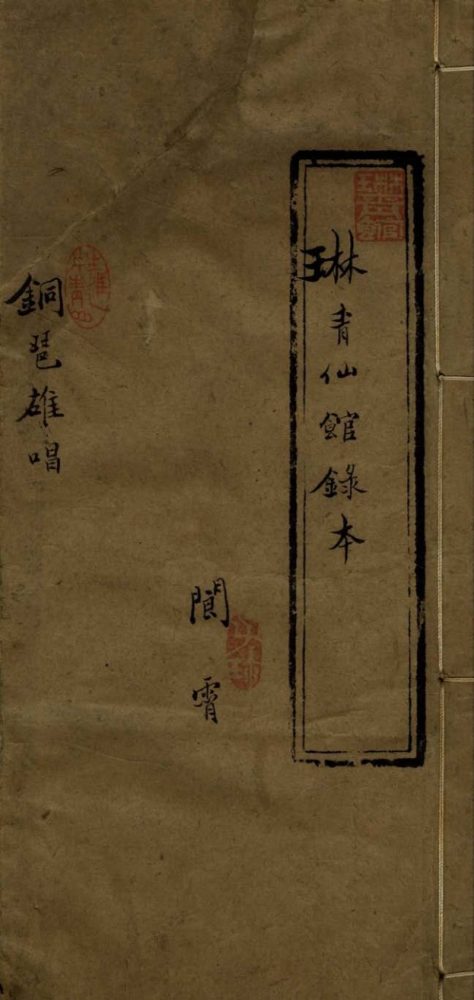 琳青仙館錄本
閬霄
銅琶雄唱